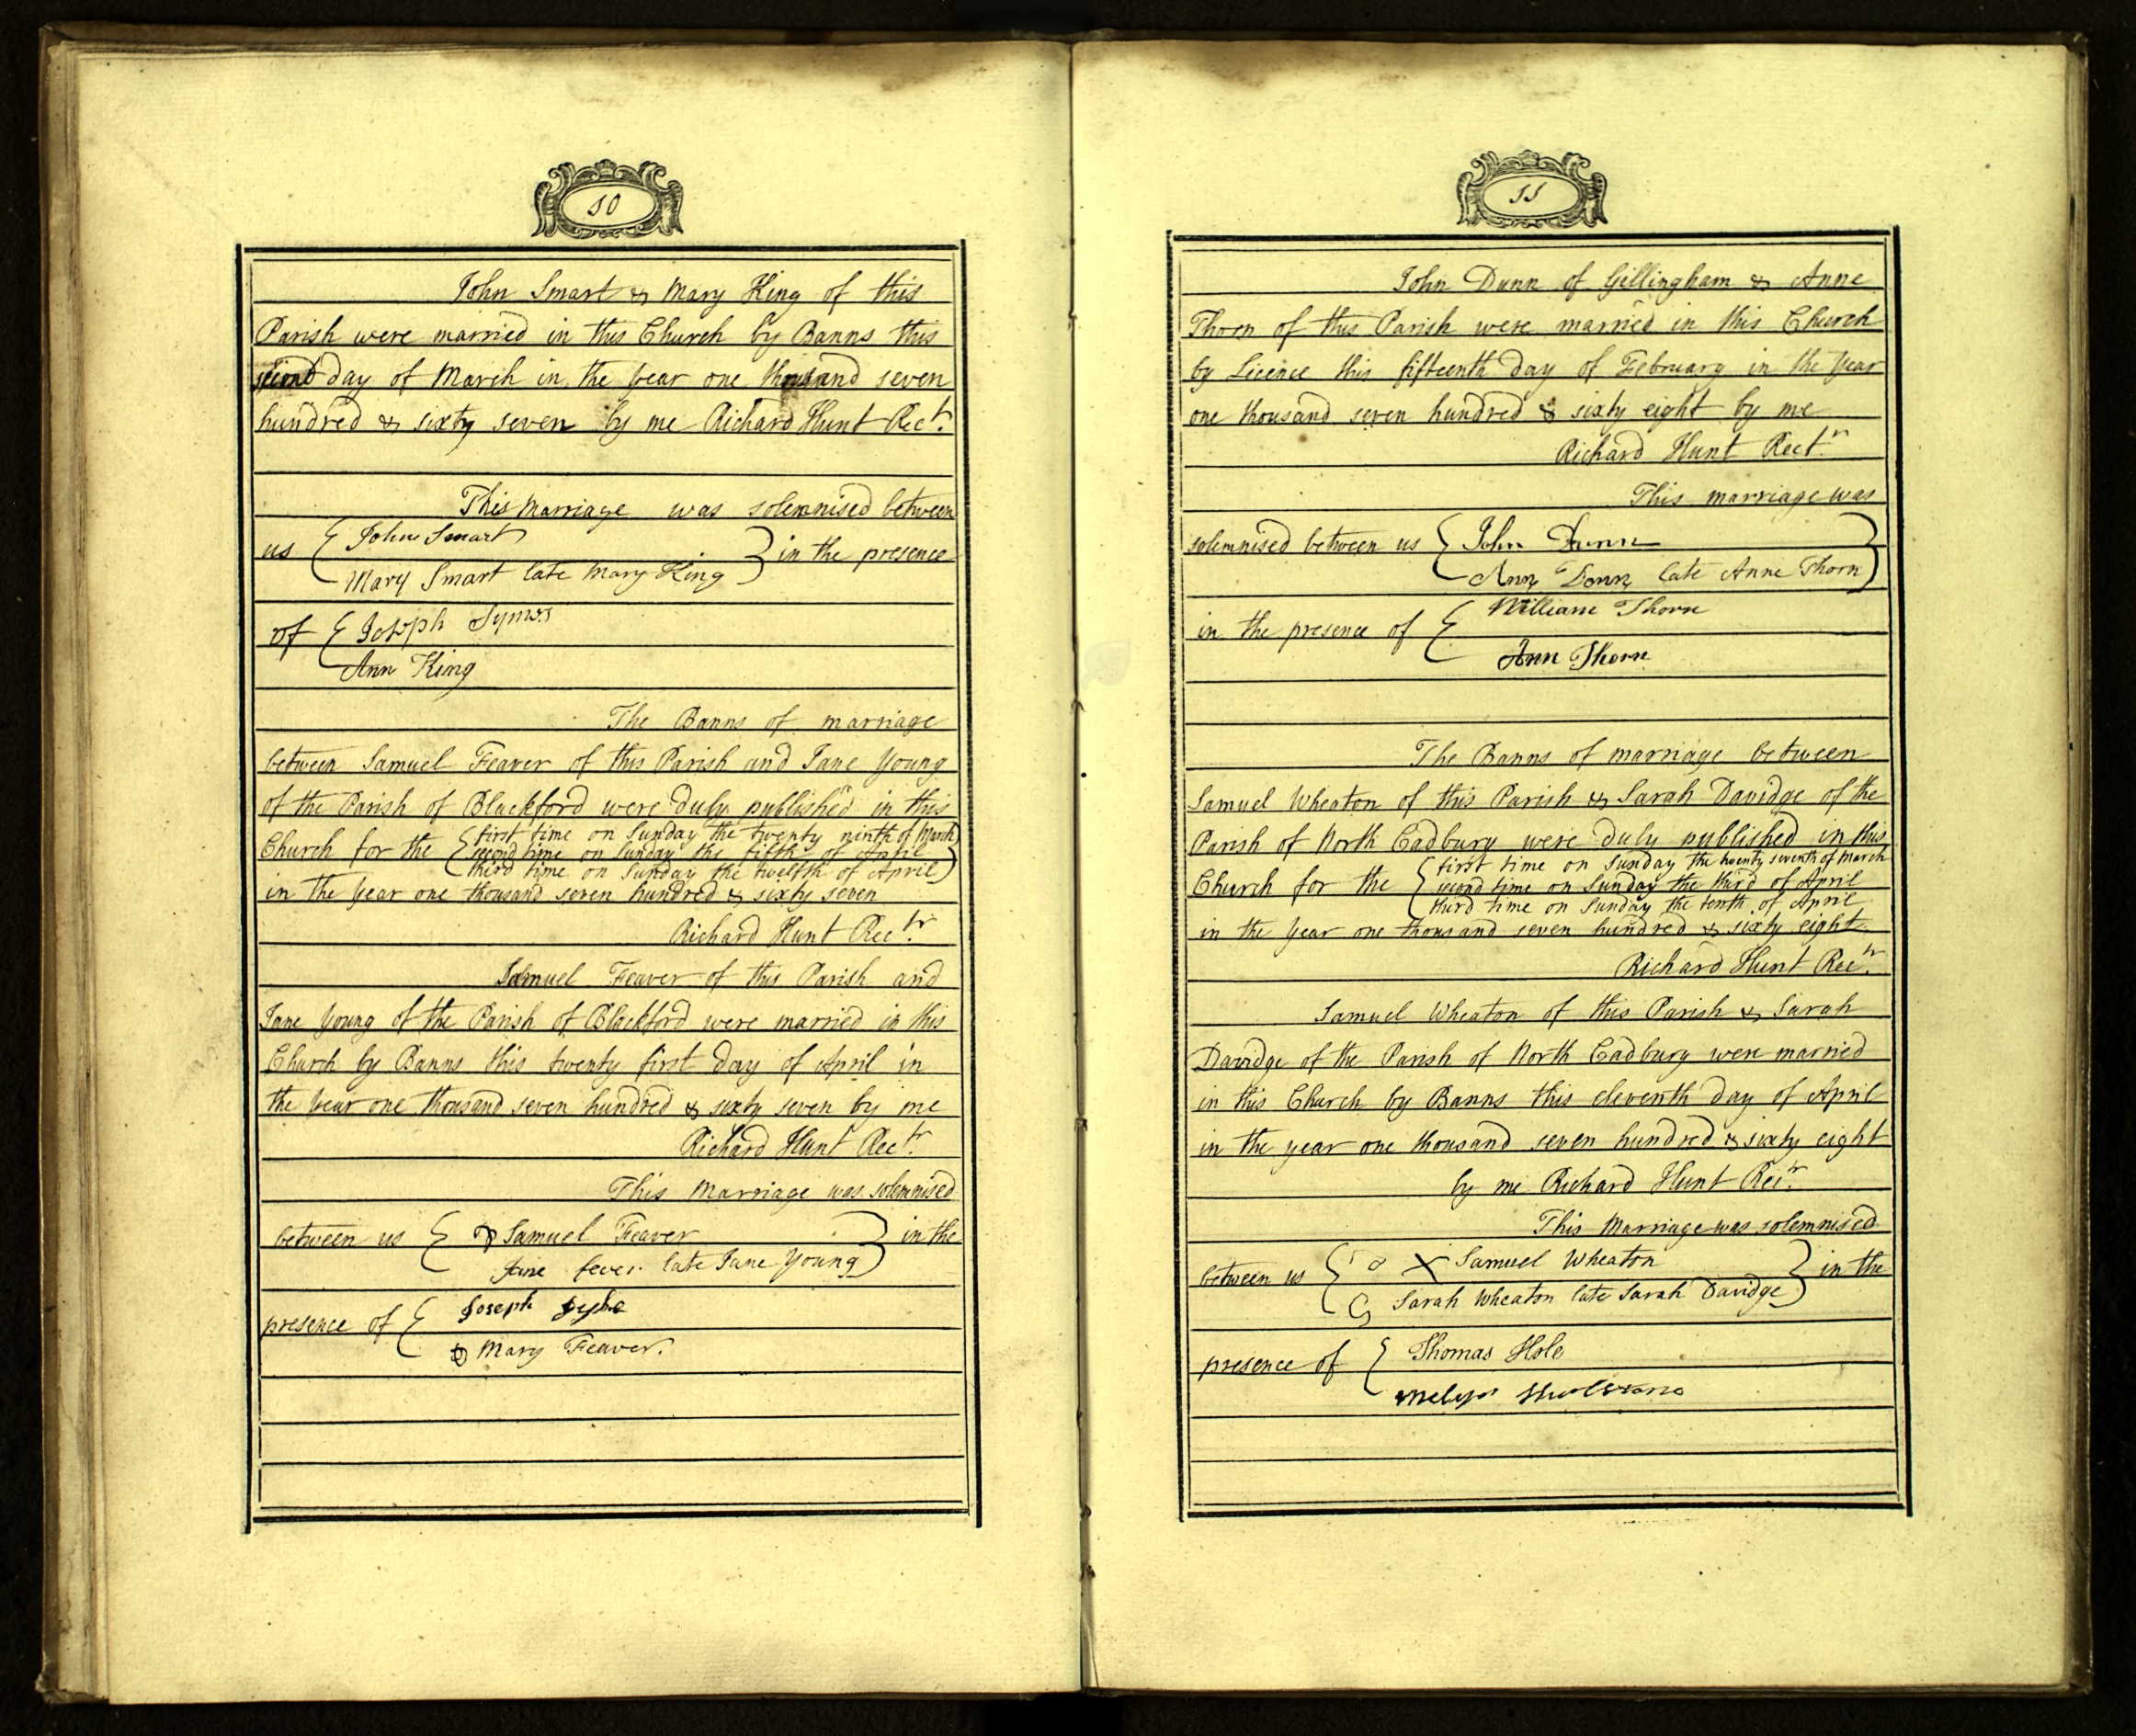 10
John Smart & Mary King of this
Parish were married in this Church by Banns this
second day of March in the year one thousand seven
hundred & sixty seven by me Richard Hunt Rectr.
This Marriage was solemnised between
us { John Smart } in the presence
Mary Smart late Mary King
of { Joseph Symes
Ann King
The Banns of marriage
between Samuel Feaver of this Parish and Jane Young
of the Parish of Blackford were duly publish'd in this
Church for the { first time on Sunday the twenty ninth of March
second time on Sunday the fifth of April
third time on Sunday the twelfth of April }
in the year one thousand seven hundred & sixty seven
Richard Hunt Rectr.
Samuel Feaver of this Parish and
Jane Young of the Parish of Blackford were married in this
Church by Banns this twenty first day of April in
the year one thousand seven hundred & sixty seven by me
Richard Hunt Rectr.
This Marriage was solemnised
between us { Samuel Feaver } in the
Jane fever late Jane Young
presence of { Joseph
Mary Feaver.
11
John Dunn of Gillingham & Anne
Thorn of this Parish were married in this Church
by Licence this fifteenth day of February in the year
one thousand seven hundred & sixty eight by me
Richard Hunt Rectr.
This marriage was
solemnised between us { John Dunn }
Ann Donn late Anne Thorn
in the presence of { William Thorn
Ann Thorn
The Banns of marriage between
Samuel Wheaton of this Parish & Sarah Davidge of the
Parish of North Cadbury were duly published in this
Church for the { first time on Sunday the twenty seventh of March
second time on Sunday the third of April
third time on Sunday the tenth of April
in the year one thousand seven hundred & sixty eight
Richard Hunt Recr.
Samuel Wheaton of this Parish & Sarah
Davidge of the Parish of North Cadbury were married
in this Church by Banns this eleventh day of April
in the year one thousand seven hundred & sixty eight
by me Richard Hunt Recr.
This Marriage was solemnised
between us { X Samuel Wheaton } in the
Sarah Wheaton late Sarah Davidge
presence of { Thomas Hole